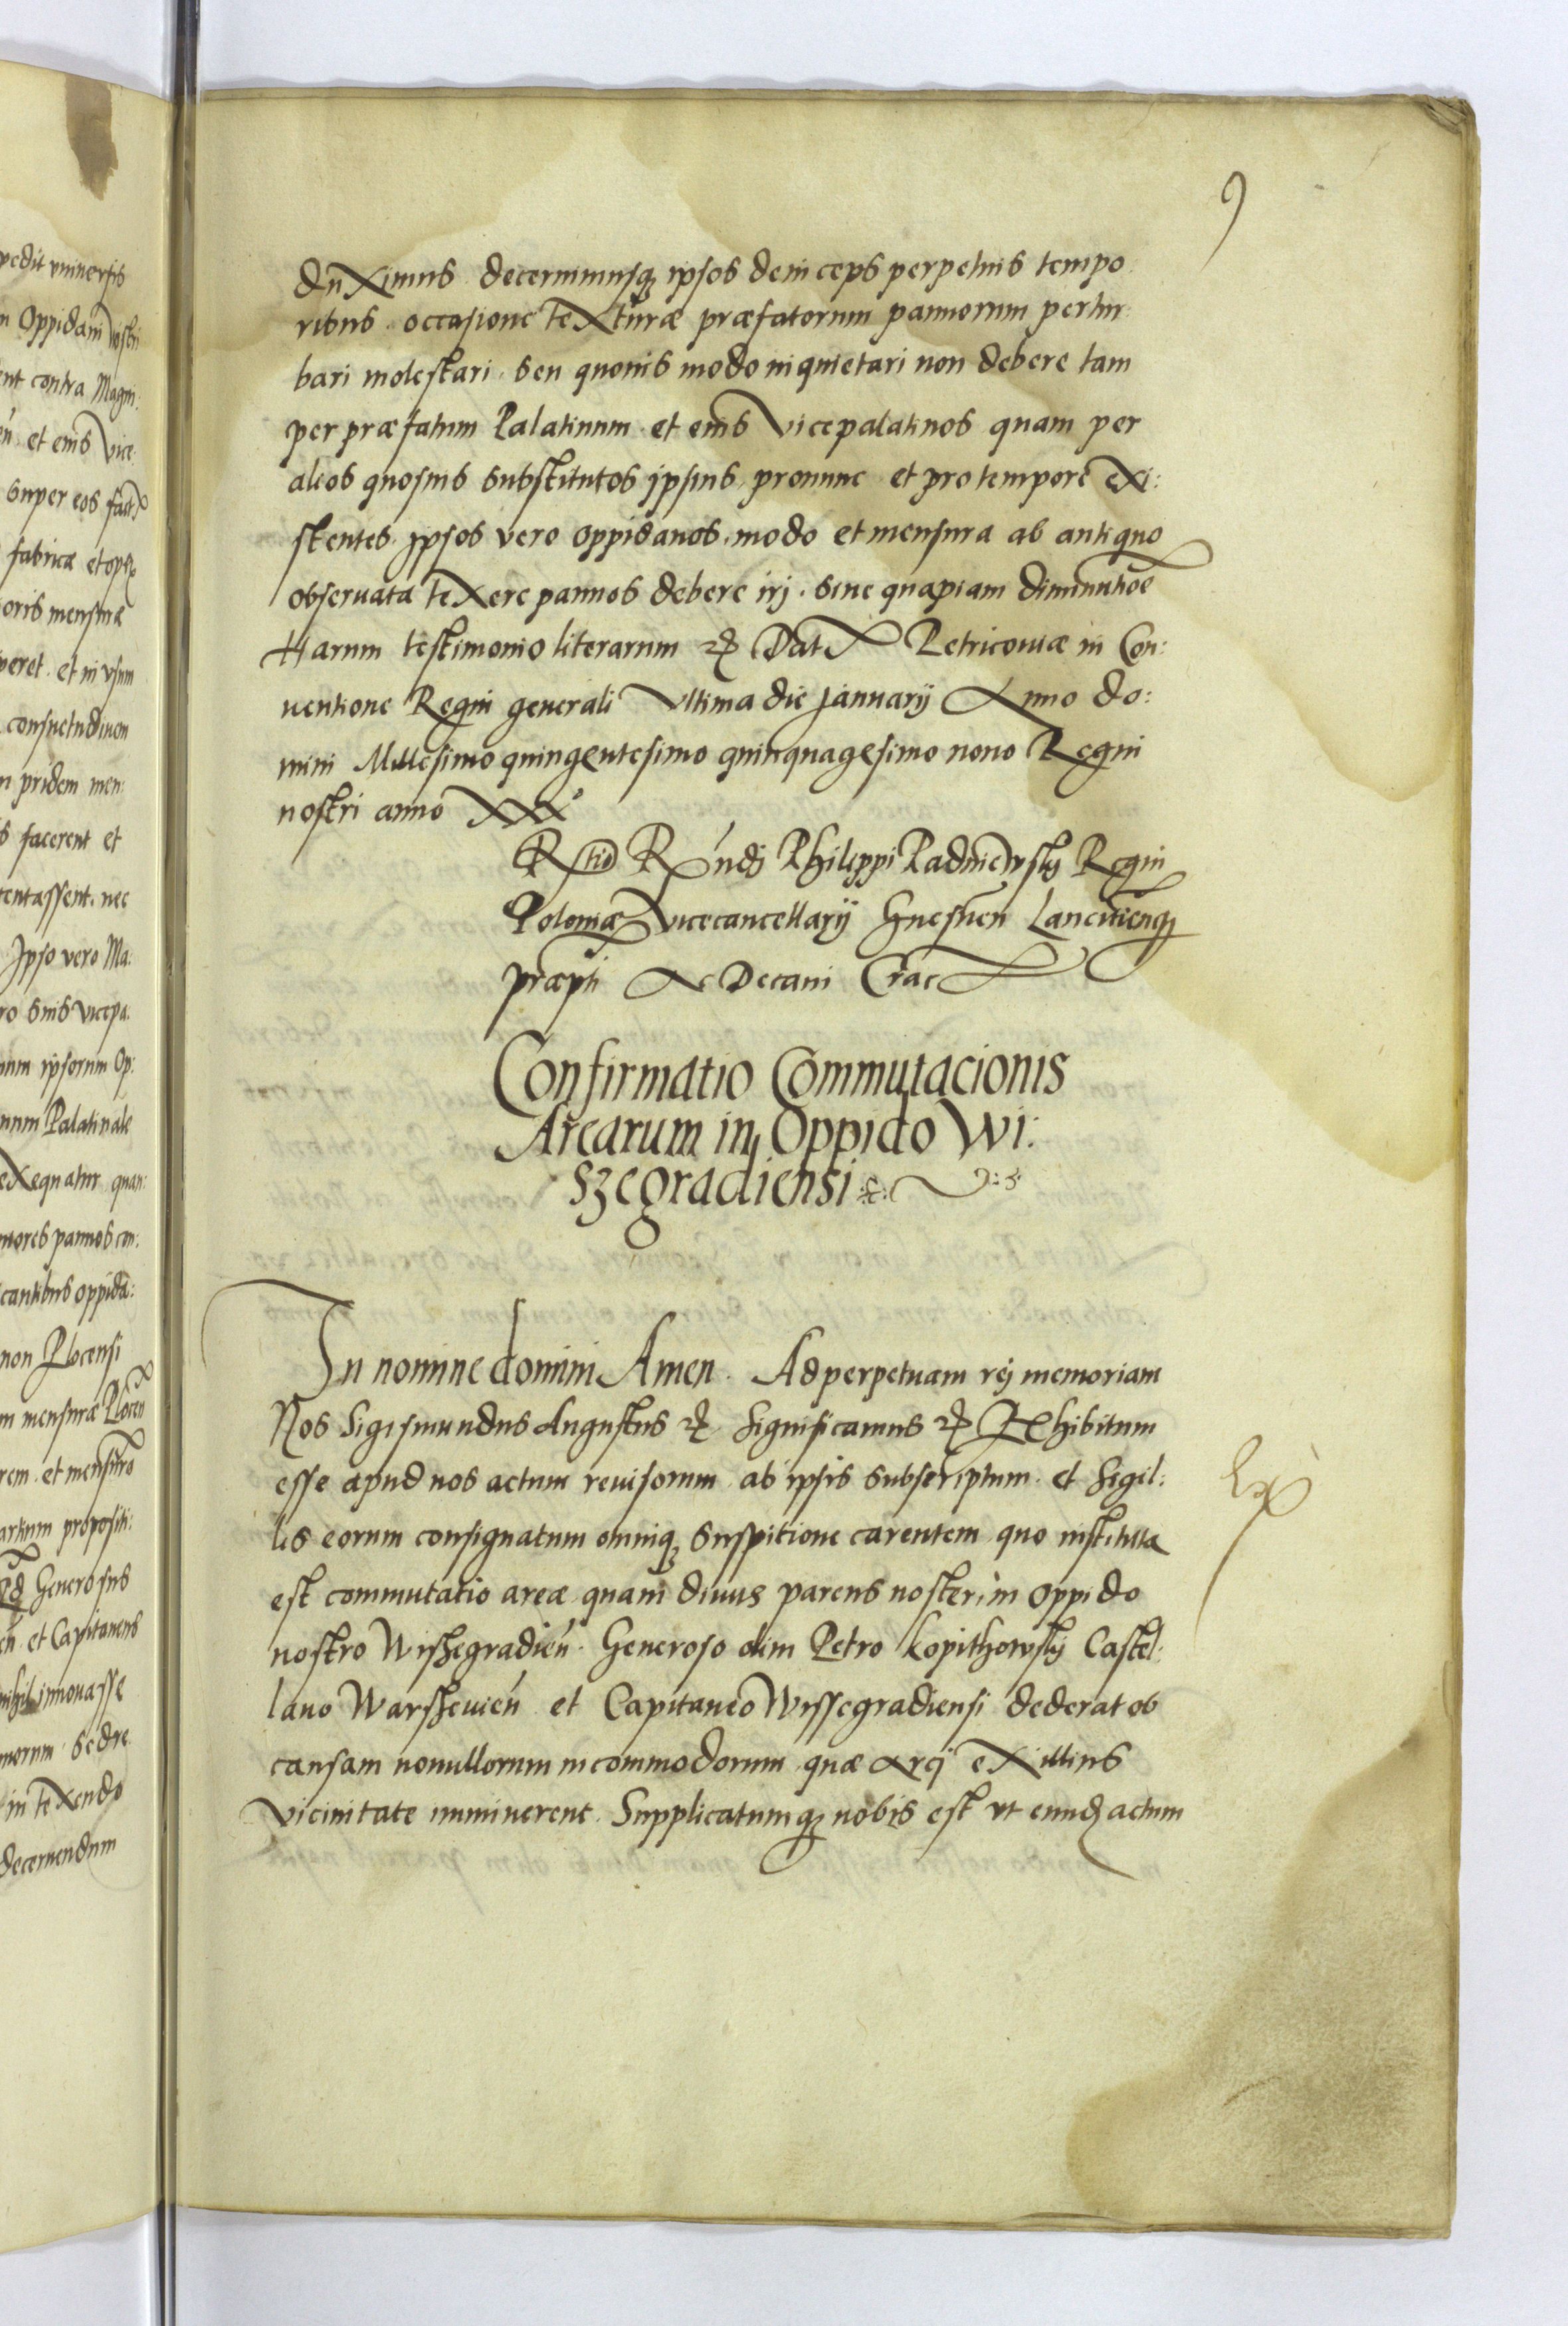 9
duximus decernimusq; ipsos deinceps perpetuis tempo
ribus occasione texturæ præfatorum pannorum pertur:
bari molestari seu quouis modo inquietari non debere tam
per præfatum Palatinum et eius Vicepalatinos quam per
alios quosuis substitutos ipsius pronunc et pro tempore exi:
stentes. Ipsos vero oppidanos modo et mensura ab antiquo
obseruata texere pannos debere irj. sine quapiam diminutiõe
Harum testimonio literarum etc Dat Petricouiæ in Con:
uentione Regni generali Vltima die Januarij Anno do:
mini Millesimo quingentesimo quinquagesimo nono Regni
nostri anno XXXo
Rtio Rundj Philippi Padniewskj Regni
Poloniæ Vicecancellarij Gnesnen Lancitienq;
præpti Ac Decani Crac
Confirmatio Commutacionis
Arearum in Oppido Wi:
szegradiensi
In nomine domini Amen. Ad perpetuam rej memoriam
Nos Sigismundus Augustus etc Significamus etc Exhibitum
esse apud nos actum reuisorum ab ipsis subscriptum et Sigil:
lis eorum consignatum omniq; suspitione carentem quo instituta
est commutatio areæ quam diuus parens noster in oppido
nostro Wishegradien. Generoso olim Petro Kopithowskj Castel:
lano Warsheuien et Capitaneo Wissegradiensi dederat ob
causam nonullorum incommodorum quæ arcj ex illius
vicinitate imminerent. Supplicatumq; nobis est vt eundj actum
Ex
vedit vniuersis
Oppidani nostri
ent contra Magni:
et eius Vice
super eos
fabricæ et
oris mensuræ
peret. et in vsum
consuetudinem
pridem men:
facerent et
tentassent. nec
Ipso vero Ma:
ro suis vicepa:
num ipsorum Op:
num Palatinale
exequatur quan:
pannos con:
cantibus oppida:
non Plocensi
mensuræ Plocen
rem et mensuro
propositi:
Generosus
et Capitaneus
nihil innouasse
morum sed re
in texendo
decernendum